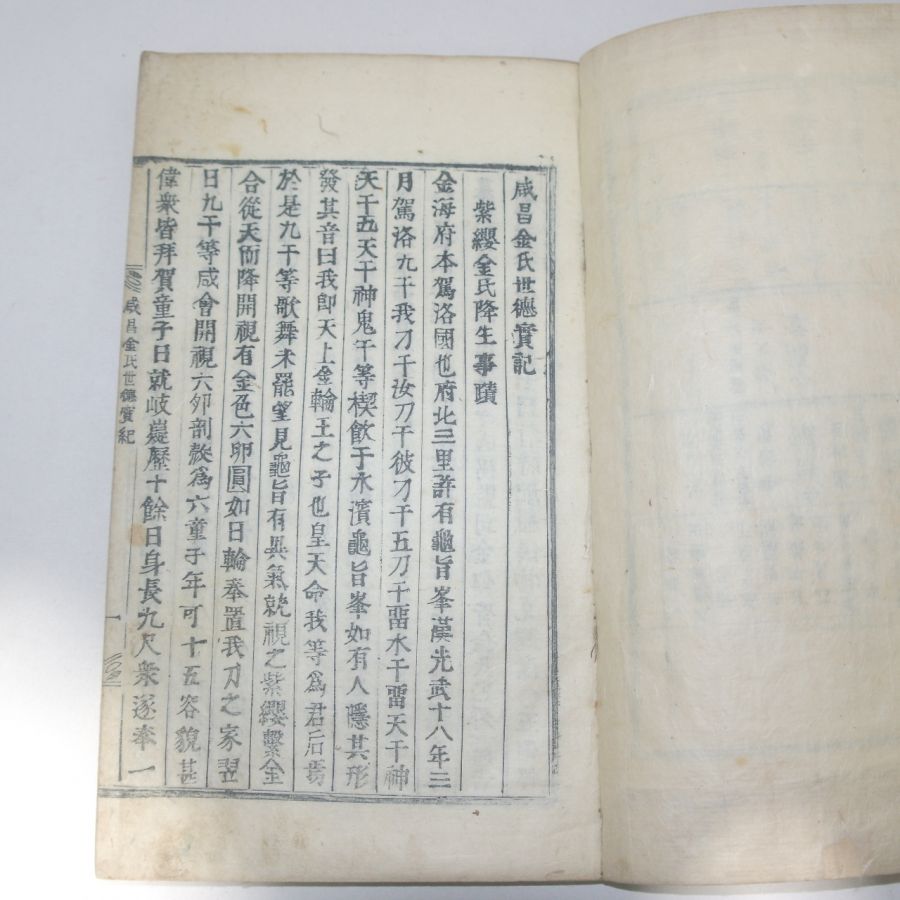 咸昌金氏世德實記
紫纓金氏降生事蹟
金海府本駕洛國也府北三里許有龜旨峯漢光武十八年三
月駕洛九干我刀干汝刀干彼刀干五刀干留水干留天干神
天干五天干神鬼干等禊飮于水濱龜旨峯如有人隱其形
發其音曰我卽天上金輪王之子也皇天命我等爲君后焉
於是九干等歌舞未罷望見龜旨有異氣就視之紫纓繫金
合從天而降開視有金色六卵圓如日輪奉置我刀之家翌
日九干等咸會開視六卵剖殼爲六童子年可十五容貌甚
偉衆皆拜賀童子日就岐嶷歷十餘日身長九尺衆遂奉一
咸昌金氏世德實紀
一